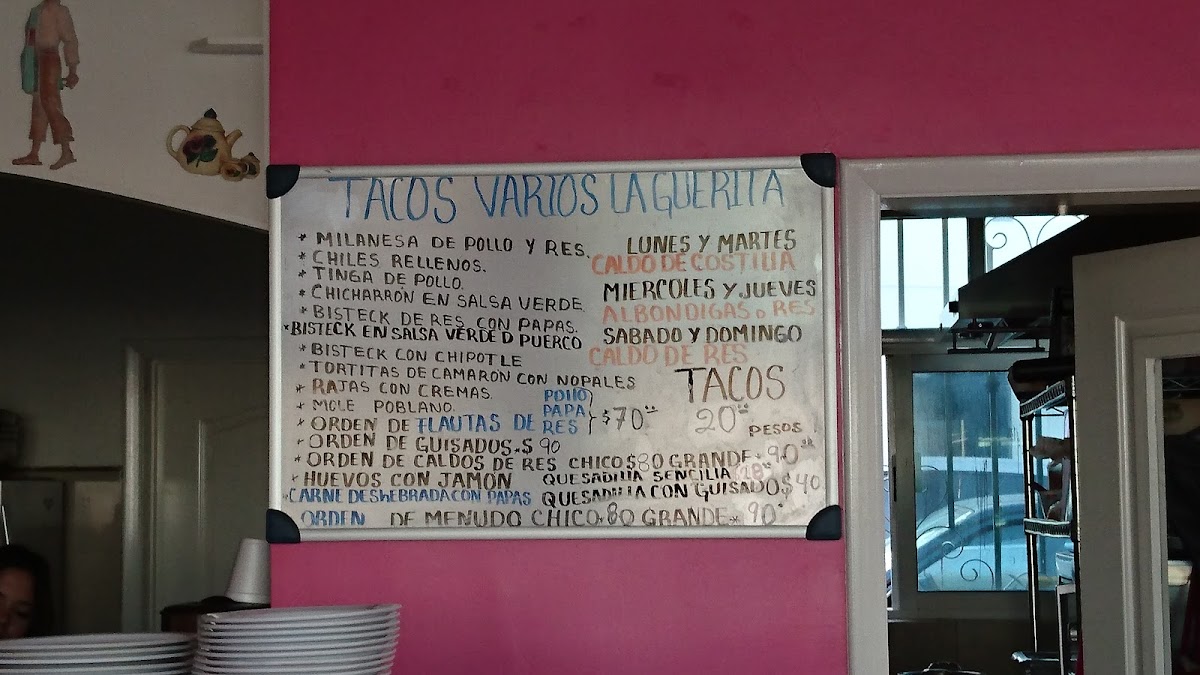 TACOS VARIOS LA GUERITA
* MILANESA DE POLLO Y RES.
* CHILES RELLENOS.
* TINGA DE POLLO.
* CHICHARRÓN EN SALSA VERDE
* BISTECK DE RES CON PAPAS.
*BISTECK EN SALSA VERDE D PUERCO
* BISTECK CON CHIPOTLE
* TORTITAS DE CAMARON CON NOPALES
* RAJAS CON CREMAS.
* MOLE POBLANO.
* ORDEN DE FLAUTAS DE POLLO PAPA RES } $70
* ORDEN DE GUISADOS.$ 90
* ORDEN DE CALDOS DE RES CHICO $80 GRANDE 90
* HUEVOS CON JAMON
*CARNE DESHEBRADA CON PAPAS
LUNES Y MARTES
CALDO DE COSTILIA
MIERCOLES Y JUEVES
ALBONDIGAS D RES
SABADO Y DOMINGO
CALDO DE RES
TACOS
20 PESOS
QUESADILIA SENCILIA
QUESADILIA CON GUISADO $ 40
ORDEN DE MENUDO CHICO 80 GRANDE 90